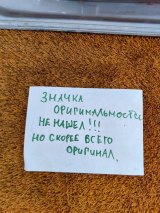 ЗНАЧКА
ОРИГИНАЛЬНОСТИ
НЕ НАШЕЛ!!!
НО СКОРЕЕ ВСЕГО
ОРИГИНАЛ.